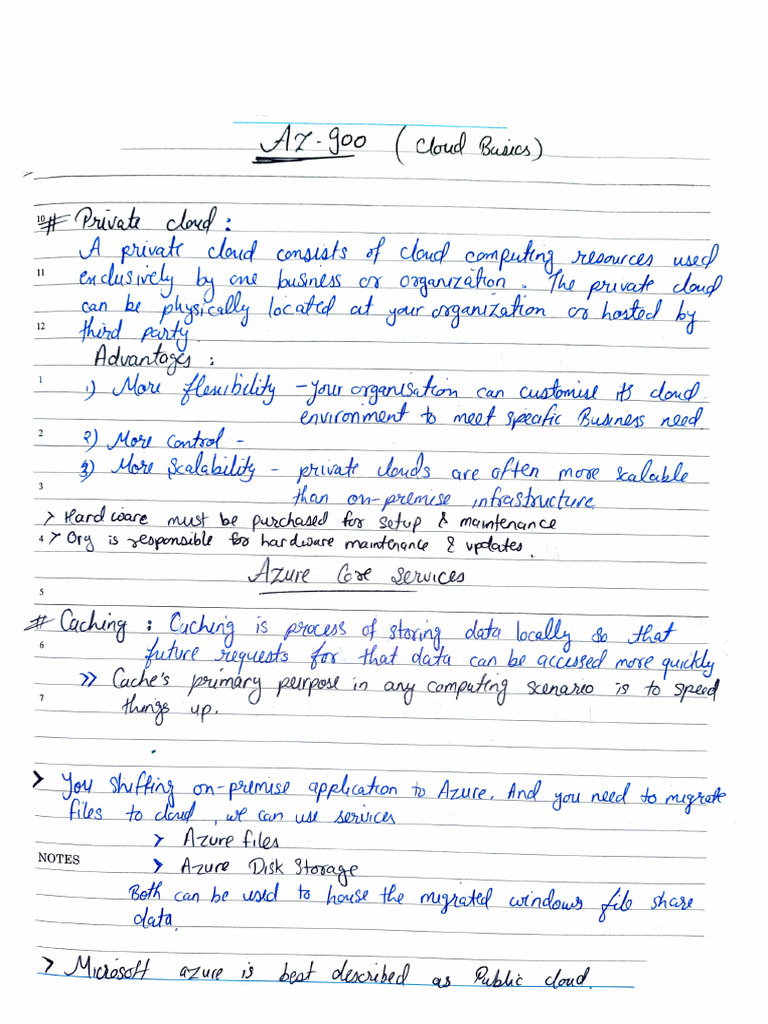 AZ-900 (Cloud Basics)
10 # Private cloud:
A private cloud consists of cloud computing resources used
11 exclusively by one business or organization. The private cloud
can be physically located at your organization or hosted by
12 third party.
Advantages:
1 1) More flexibility - your organisation can customise its cloud
environment to meet specific Business need
2 2) More control -
3) More Scalability - private clouds are often more scalable
3 than on-premise infrastructure
> Hardware must be purchased for setup & maintenance
4 > Org is responsible for hardware maintenance & updates.
Azure Core Services
5
# Caching: Caching is process of storing data locally so that
6 future requests for that data can be accessed more quickly
>> Cache's primary purpose in any computing scenario is to speed
7 things up.
> You shifting on-premise application to Azure. And you need to migrate
files to cloud, we can use services
> Azure files
NOTES > Azure Disk Storage
Both can be used to house the migrated windows file share
data.
> Microsoft azure is best described as Public cloud.